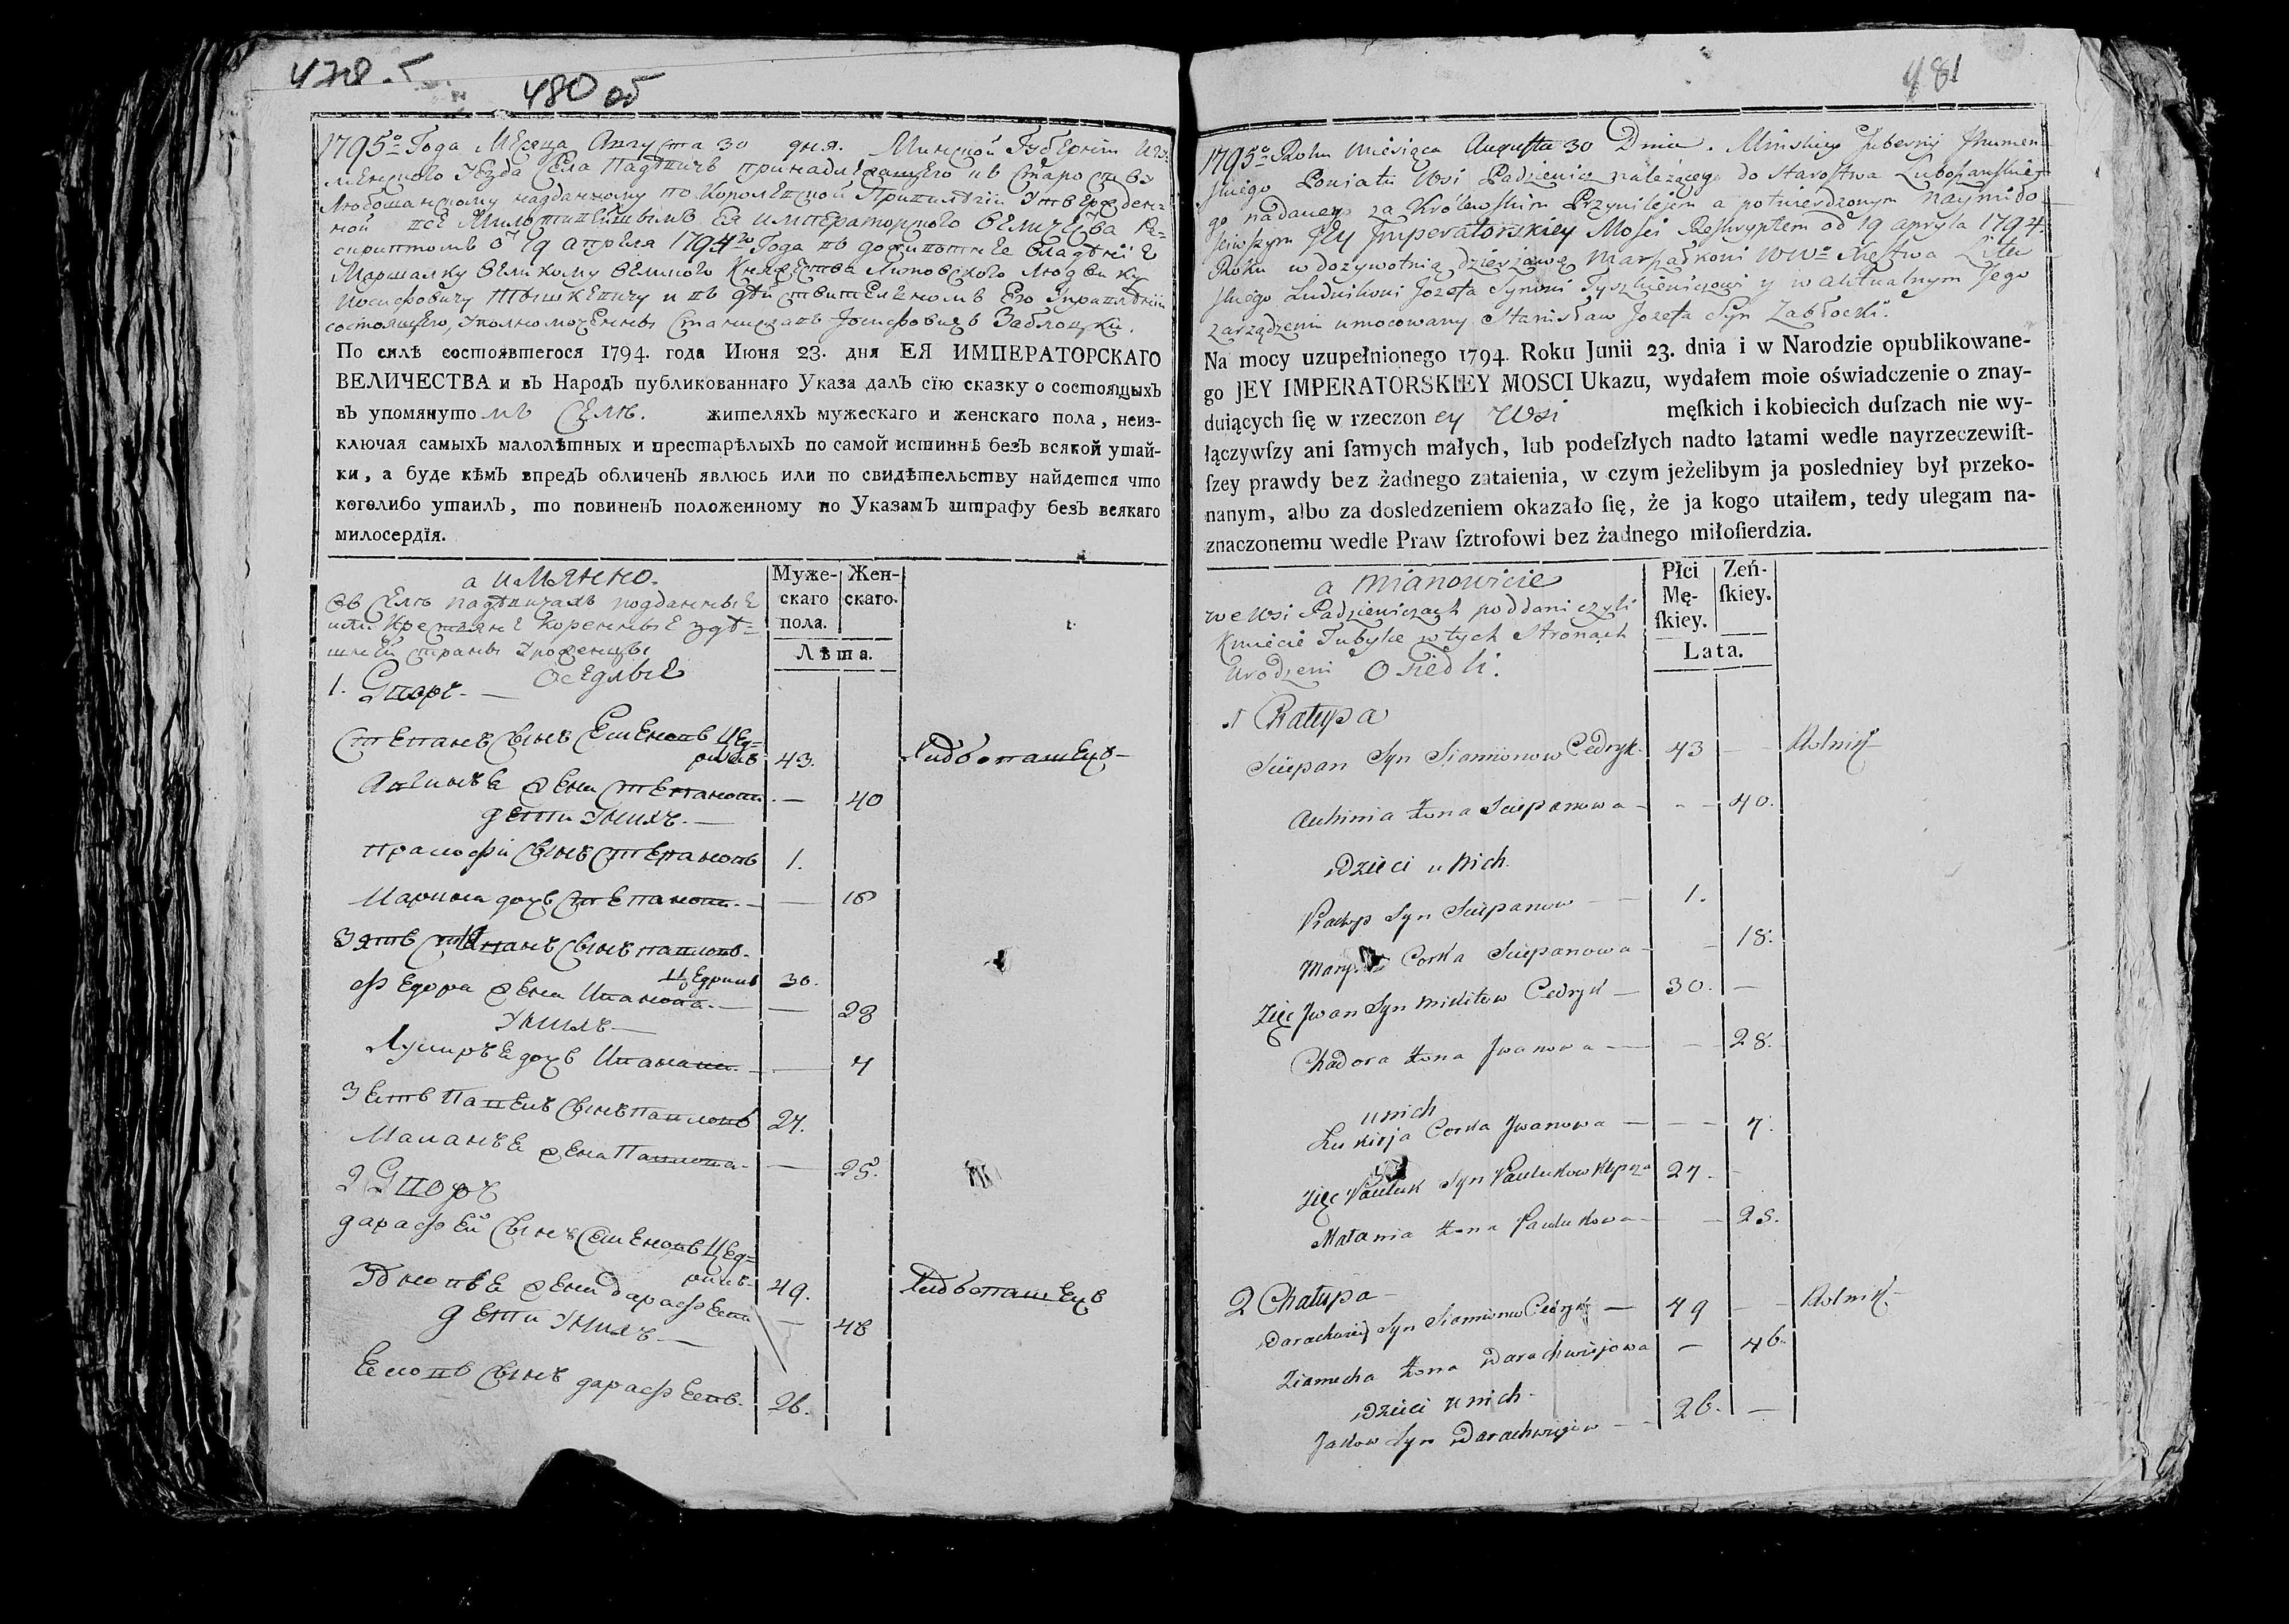 478.
480 об
1795º Года Месяца Августа 30 дня. Минской Губернiи Игу-
менского Уезда Села Падѣвичъ принадлежащего къ Старост­ву
Любошанскому наданному по Королевской Привилегiи Утвержден-
ной все Милостивейшымъ Ея императорского величества Ре-
скриптомъ отъ 19 апреля 1794го Года въ дожывотнее владѣнiе
Маршалку великому великого Княжества Литовского Людвику
Иосифовичу Тышкевичу и въ действительномъ Его Управленiи
состоящего, Уполномоченны Станиславъ Иосифовичъ Заблоцки.
По силѣ состоявшегося 1794. года Июня 23. дня ЕЯ ИМПЕРАТОРСКАГО
ВЕЛИЧЕСТВА и въ Народъ публикованнаго Указа далъ сїю сказку о состоящыхъ
въ упомянуто мъ Селѣ. жителяхъ мужескаго и женскаго пола, неиз-
ключая самыхъ малолѣтныхъ и престарѣлыхъ по самой истиннѣ безъ всякой утай-
ки, а буде кѣмъ впредъ обличенъ явлюсь или по свидѣтельству найдется что
коголибо утаилъ, то повиненъ положенному по Указамъ штрафу безъ всякаго
милосердїя.
а имянно.
Муже-
скаго
пола.
Жен-
скаго.
Лѣта.
въ Селѣ Падѣвичахъ подданные
или Крестяне коренные здѣ-
шней страны Уроженцы
Оседлые
1. Двор.
Степанъ Сынъ Семеновъ Цед-
рикъ 43. Хлѣбопашецъ
жена Степанова — 40
дети Унихъ.
Пракофiй Сынъ Степановъ 1.
Марина дочь Степанова — 18
Зять Сынъ
Цедрикъ 30.
Федора жена Иванова — 28
Унихъ
Лукиръя дочь Иванова — 7
Зеть Павелъ Сынъ Павловъ 27.
Маланъя жена Павлова — 25.
2 Двор
Дарафей Сынъ Семеновъ Цед-
рикъ 49. Хлѣбопашецъ
жена Дарафеева — 46
дети Унихъ
Сынъ дарафеевъ. 26.
481
1795º Roku Miesiąca Augusta 30 Dnia. Minskiey Gubernij Jhumen-
skiego Powiatu Wsi Padziewicz należącego do Starostwa Luboszańskie-
go nadanego za Królewskim Przywilejem a potwierdzonym Naymiło-
sciwszym Jey Jmperatorskiey Mosci Reskryptem od 19 apryla 1794.
Roku w dożywotnią dzierżawę Marszałkowi WWº Xięstwa Litew
skiego Ludwikowi Jozefa Synowi Tyszkiewiczowi y w aktualnym Jego
zarządzeniu umocowany Stanisław Jozefa Syn Zabłocki.
Na mocy uzupełnionego 1794. Roku Junii 23. dnia i w Narodzie opublikowane-
go JEY IMPERATORSKIEY MOSCI Ukazu, wydałem moie oświadczenie o znay-
duiących ſię w rzeczon ey Wsi męſkich i kobiecich duſzach nie wy-
łączywſzy ani ſamych małych, lub podeſzłych nadto łatami wedle nayrzeczewiſt-
ſzey prawdy bez żadnego zataienia, w czym jeżelibym ja posledniey był przeko-
nanym, albo za dosledzeniem okazało ſię, że ja kogo utaiłem, tedy ulegam na-
znaczonemu wedle Praw ſztrofowi bez żadnego miłoſierdzia.
a mianowicie
Płci
Mę-
ſkiey.
Zeń-
ſkiey.
Lata.
we Wsi Padziewiczach poddani czyli
Kmiecie Tubylce w tych Stronach
Urodzeni Osiedli.
1 Chałupa
Sciepan Syn Siamionow Cedryk 43 — Rolnik
Auhinia Żona Sciepanowa — 40.
Dzieci u Nich.
Prakop Syn Sciepanow 1.
Mary Corka Sciepanowa — 18.
Zięć Jwan Syn Mikitow Cedryk — 30. —
Chadora Żona Jwanowa — 28.
u nich
Lukirja Corka Jwanowa — 7.
Zięć Pauluk Syn Paulukow 27. —
Małania Żona Paulukowa — 25.
2 Chałupa
Darachwiej Syn Siamionow Cedryk — 49 — Rolnik
Żona Darachwiejowa — 46.
Dzieci u nich
Jakow Syn Darachwiejow — 26. —